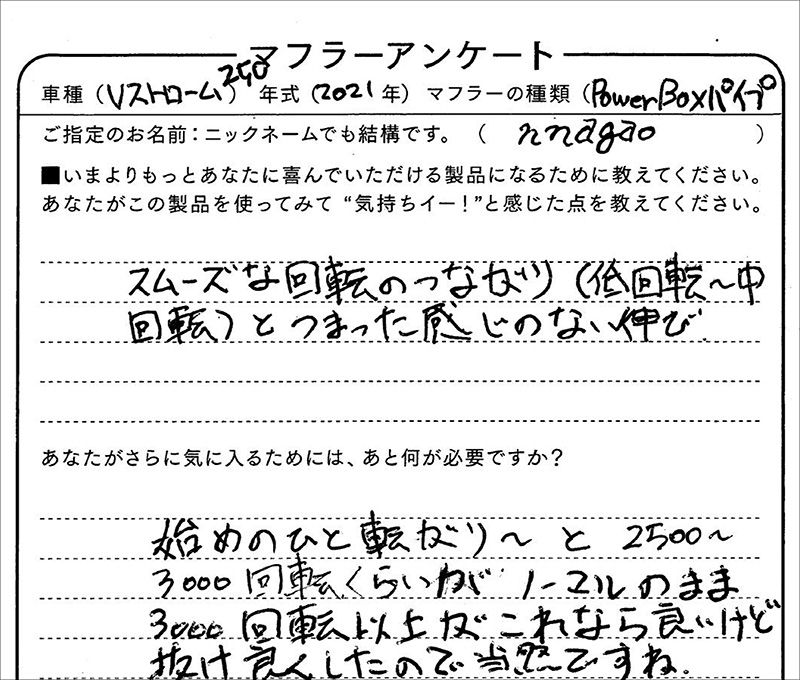 マフラーアンケート
車種（Vストローム250）年式（2021年）マフラーの種類（PowerBoxパイプ
ご指定のお名前：ニックネームでも結構です。（ nnagao ）
■いまよりもっとあなたに喜んでいただける製品になるために教えてください。
あなたがこの製品を使ってみて“気持ちイー！”と感じた点を教えてください。
スムーズな回転のつながり（低回転〜中
回転）とつまった感じのない伸び.
あなたがさらに気に入るためには、あと何が必要ですか？
始めのひと転がり〜と2500〜
3000回転くらいがノーマルのまま
3000回転以上がこれなら良いけど
抜け良くしたので当然ですね.